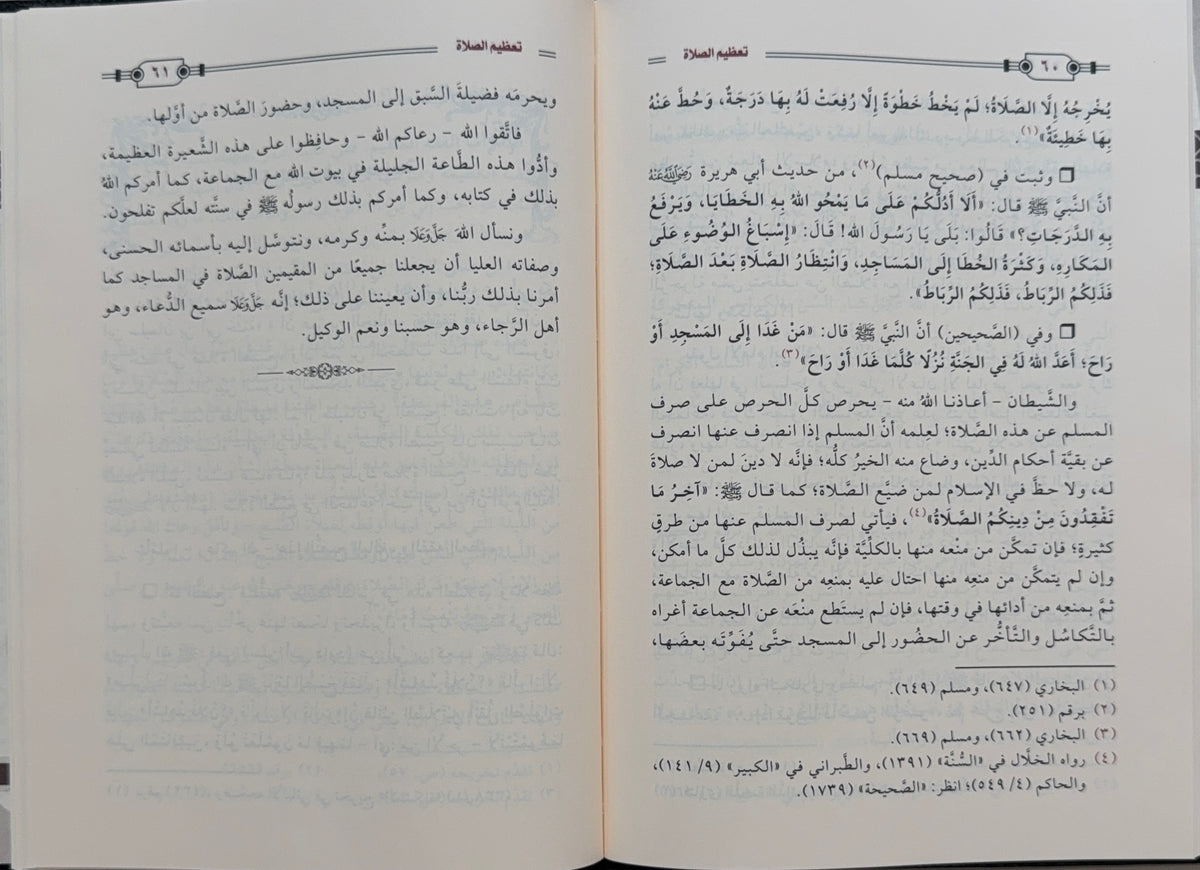 تعظيم الصلاة
٦٠
يُخْرِجُهُ إِلَّا الصَّلَاةُ؛ لَمْ يَخْطُ خَطْوَةً إِلَّا رُفِعَتْ لَهُ بِهَا دَرَجَةٌ، وَحُطَّ عَنْهُ
بِهَا خَطِيئَةٌ»(١).
❐ وثبت في (صحيح مسلم)(٢)، من حديث أبي هريرة رَضِيَ اللَّهُ عَنْهُ
أنَّ النَّبيَّ ﷺ قال: «أَلَا أَدُلُّكُمْ عَلَى مَا يَمْحُو اللهُ بِهِ الخَطَايَا، وَيَرْفَعُ
بِهِ الدَّرَجَاتِ؟» قَالُوا: بَلَى يَا رَسُولَ الله! قَالَ: «إِسْبَاغُ الوُضُوءِ عَلَى
المَكَارِهِ، وَكَثْرَةُ الخُطَا إِلَى المَسَاجِدِ، وَانْتِظَارُ الصَّلَاةِ بَعْدَ الصَّلَاةِ؛
فَذَلِكُمُ الرِّبَاطُ، فَذَلِكُمُ الرِّبَاطُ».
❐ وفي (الصَّحيحين) أنَّ النَّبيَّ ﷺ قال: «مَنْ غَدَا إِلَى المَسْجِدِ أَوْ
رَاحَ؛ أَعَدَّ اللهُ لَهُ فِي الجَنَّةِ نُزُلًا كُلَّمَا غَدَا أَوْ رَاحَ»(٣).
والشَّيطان – أعاذنا اللهُ منه – يحرص كلَّ الحرص على صرف
المسلم عن هذه الصَّلاة؛ لعِلمه أنَّ المسلم إذا انصرف عنها انصرف
عن بقيَّة أحكام الدِّين، وضاع منه الخيرُ كلُّه؛ فإنَّه لا دينَ لمن لا صلاةَ
له، ولا حظَّ في الإسلام لمن ضيَّع الصَّلاة؛ كما قال ﷺ: «آخِرُ مَا
تَفْقِدُونَ مِنْ دِينِكُمُ الصَّلَاةُ»(٤)، فيأتي لصرف المسلم عنها من طرقٍ
كثيرةٍ؛ فإن تمكَّن من منْعه منها بالكلِّيَّة فإنَّه يبذُل لذلك كلَّ ما أمكن،
وإن لم يتمكَّن من منعِه منها احتال عليه بمنعِه من الصَّلاة مع الجماعة،
ثمَّ بمنعِه من أدائها في وقتها، فإن لم يستَطع منْعَه عن الجماعة أغراه
بالتَّكاسُل والتَّأخُّر عن الحضُور إلى المسجد حتَّى يُفَوِّتَه بعضَها،
(١) البخاري (٦٤٧)، ومسلم (٦٤٩).
(٢) برقم (٢٥١).
(٣) البخاري (٦٦٢)، ومسلم (٦٦٩).
(٤) رواه الخلَّال في «السُّنَّة» (١٣٩١)، والطَّبراني في «الكبير» (٩/ ١٤١)،
والحاكم (٤/ ٥٤٩)؛ انظر: «الصَّحيحة» (١٧٣٩).
تعظيم الصلاة
٦١
ويحرمَه فضيلةَ السَّبق إلى المسجد، وحضورَ الصَّلاة من أوَّلها.
فاتَّقوا الله – رعاكم الله – وحافِظوا على هذه الشَّعيرة العظيمة،
وأدُّوا هذه الطَّاعة الجليلة في بيوت الله مع الجماعة، كما أمركم اللهُ
بذلك في كتابه، وكما أمركم بذلك رسولُه ﷺ في سنَّته لعلَّكم تفلحون.
ونسأل اللهَ جَلَّ وَعَلَا بمنِّه وكرمه، ونتوسَّل إليه بأسمائه الحسنى،
وصفاته العليا أن يجعلنا جميعًا من المقيمين الصَّلاة في المساجد كما
أمرنا بذلك ربُّنا، وأن يعيننا على ذلك؛ إنَّه جَلَّ وَعَلَا سميع الدُّعاء، وهو
أهل الرَّجاء، وهو حسبنا ونعم الوكيل.